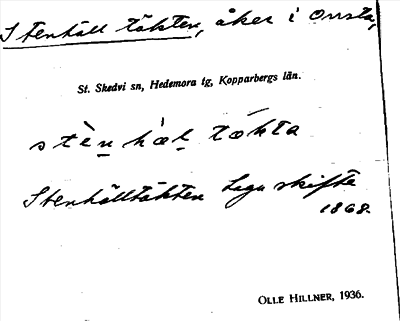 Stenhäll täkten, åker i Orrsta,
St. Skedvi sn, Hedemora tg, Kopparbergs län.
stèn hæl tækta
Stenhälltäkten Laga skifte
1868.
OLLE HILLNER, 1936.